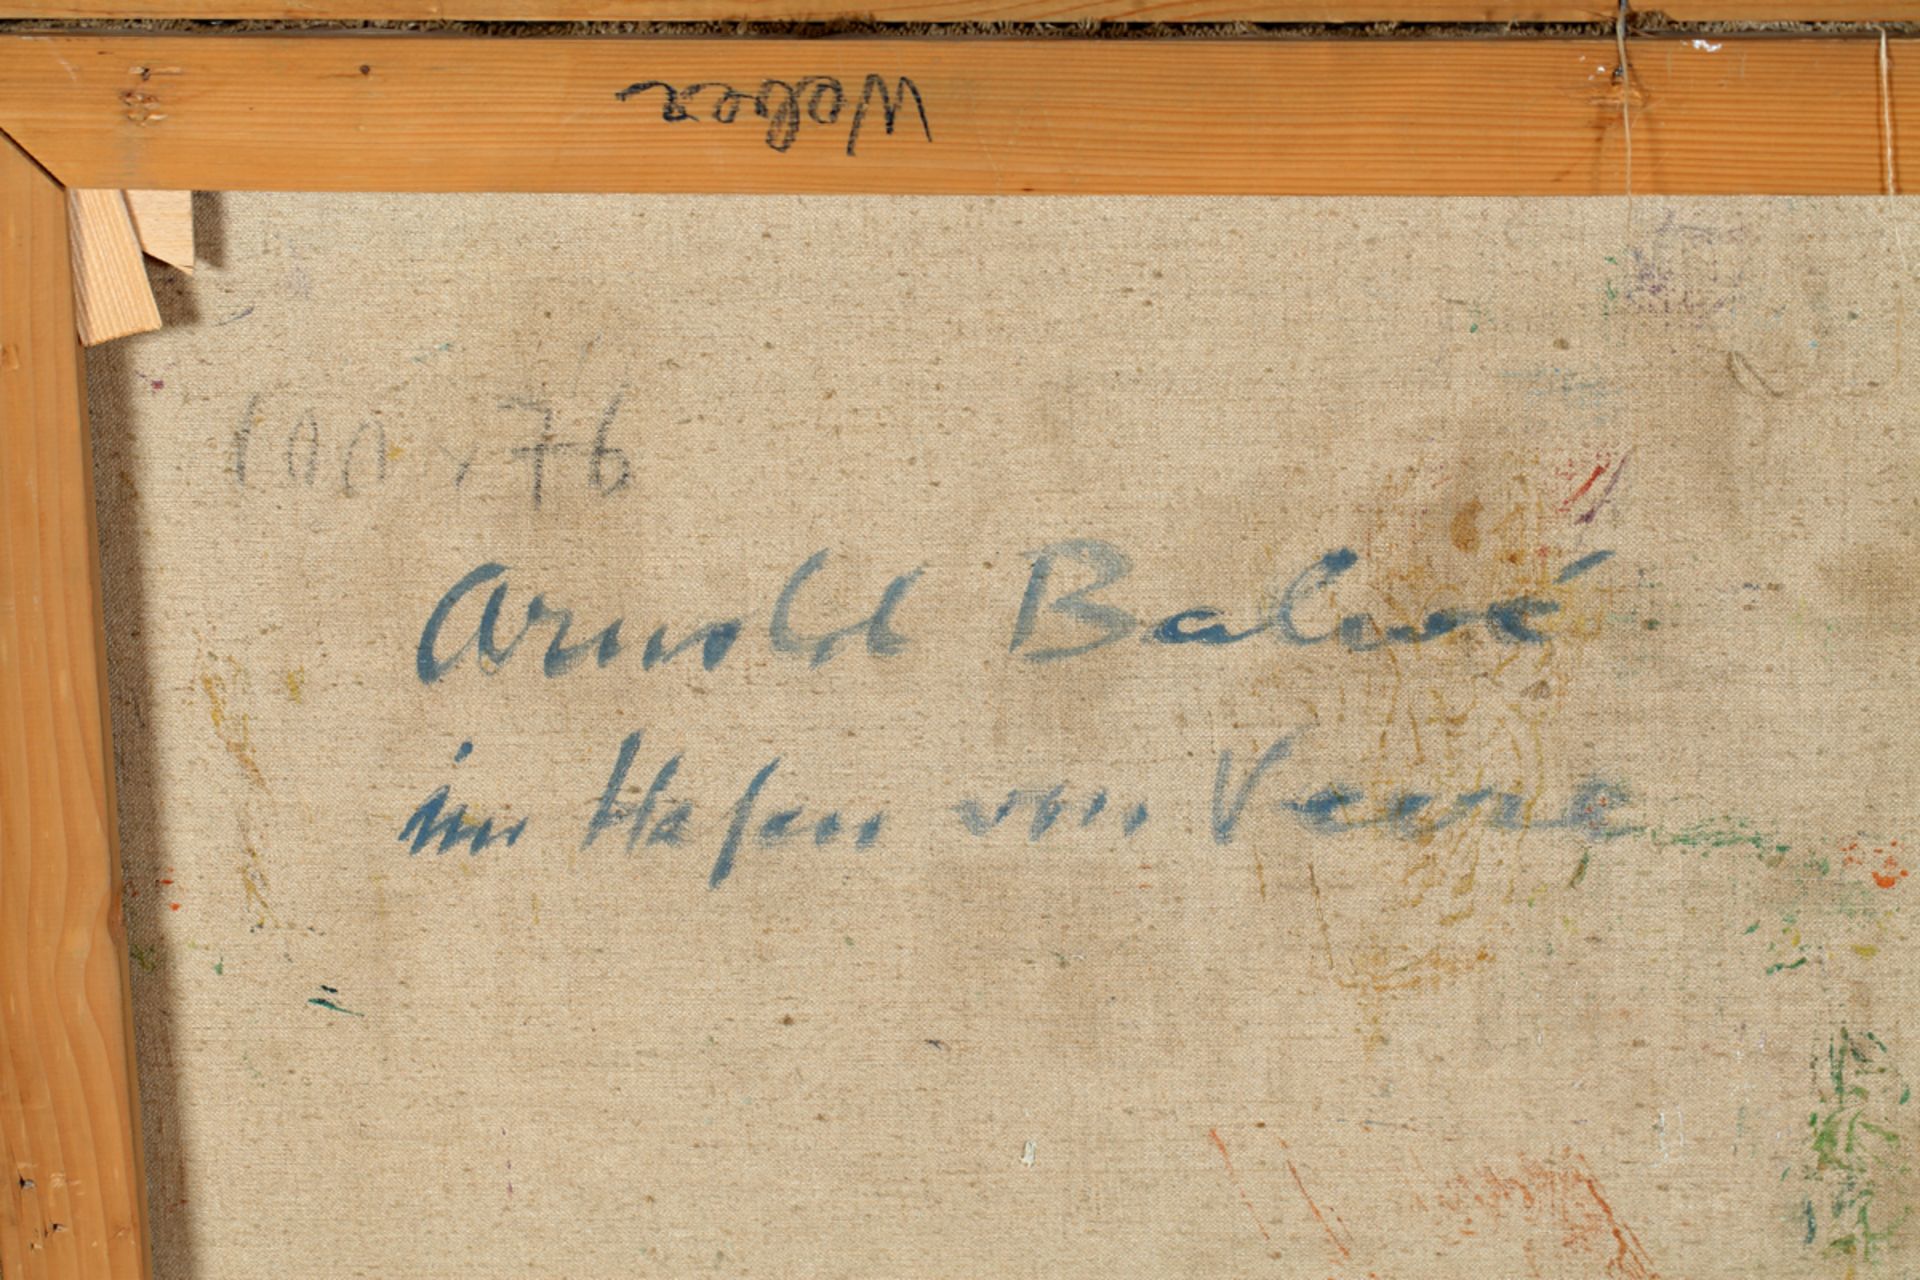 Weber
100 x 76
Arnold Balwé
im Hafen von Veere